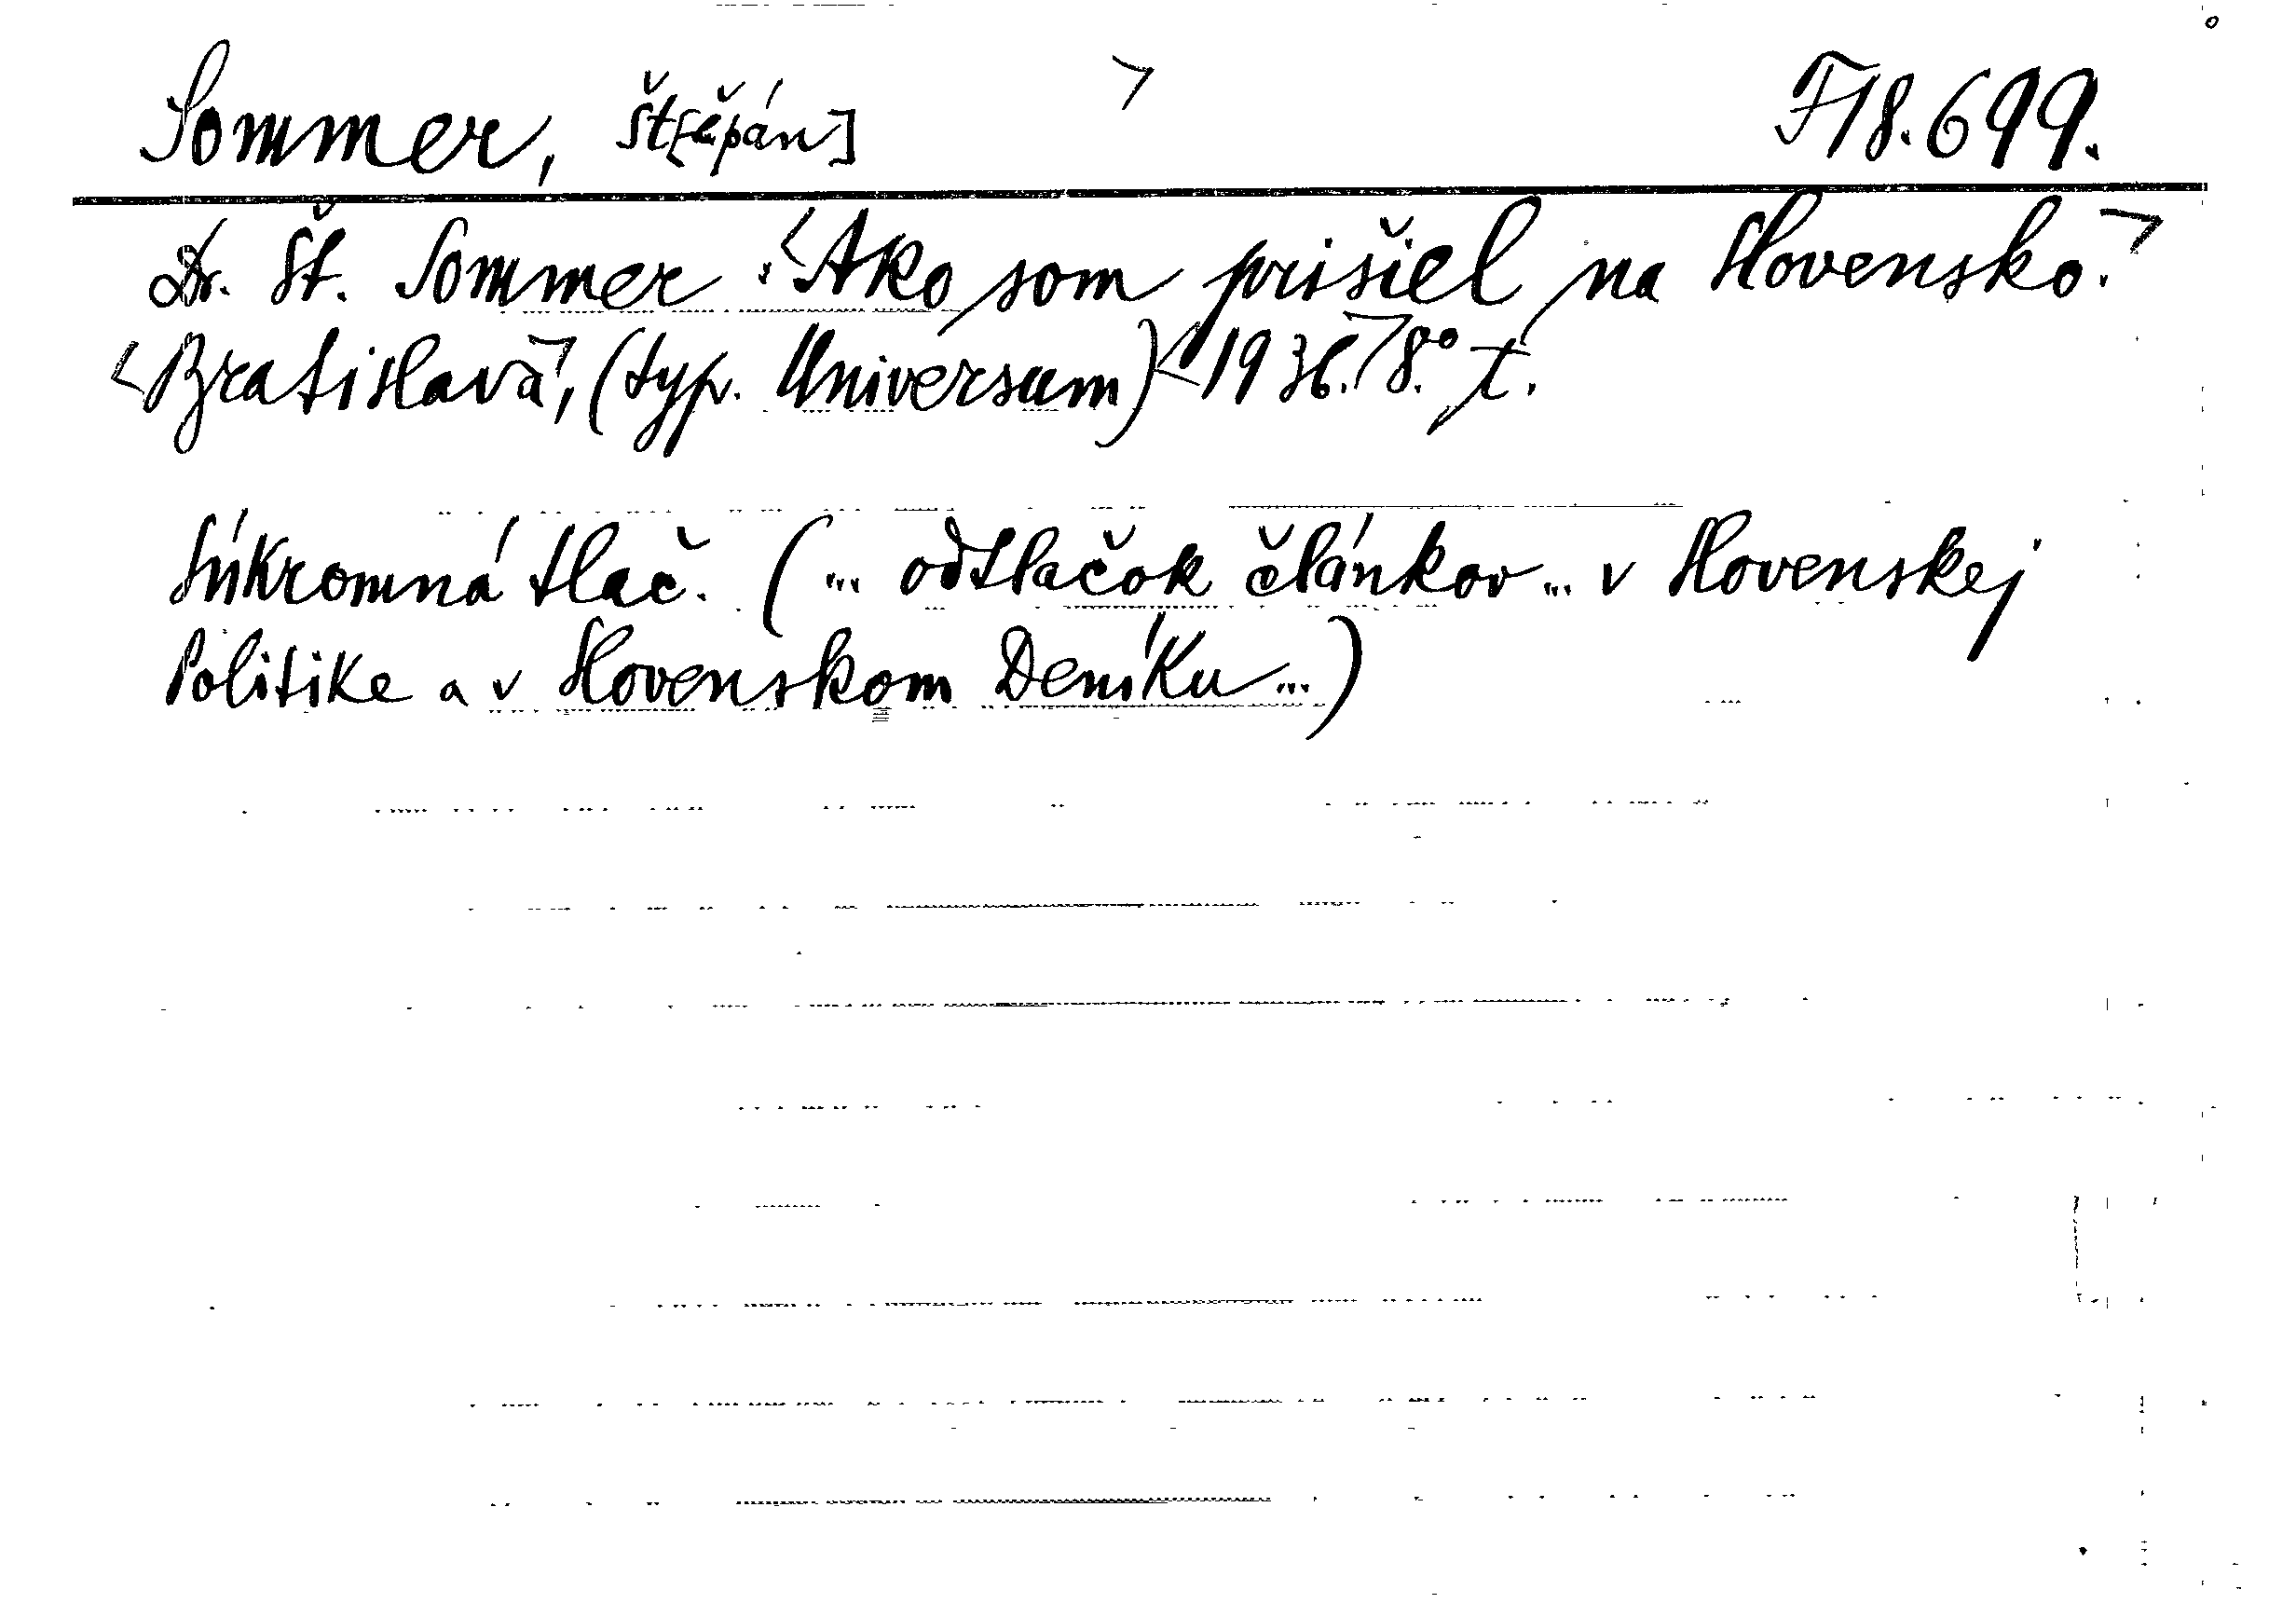 Sommer, Št[ěpán] F 18.699.
Dr. Št. Sommer: Ako som prišiel na Slovensko.
Bratislava, (typ. Universum) 1936. 8° t.
Súkromná tlač. (... odtlačok článkov ... v Slovenskej
Politike a v Slovenskom Deníku ...)